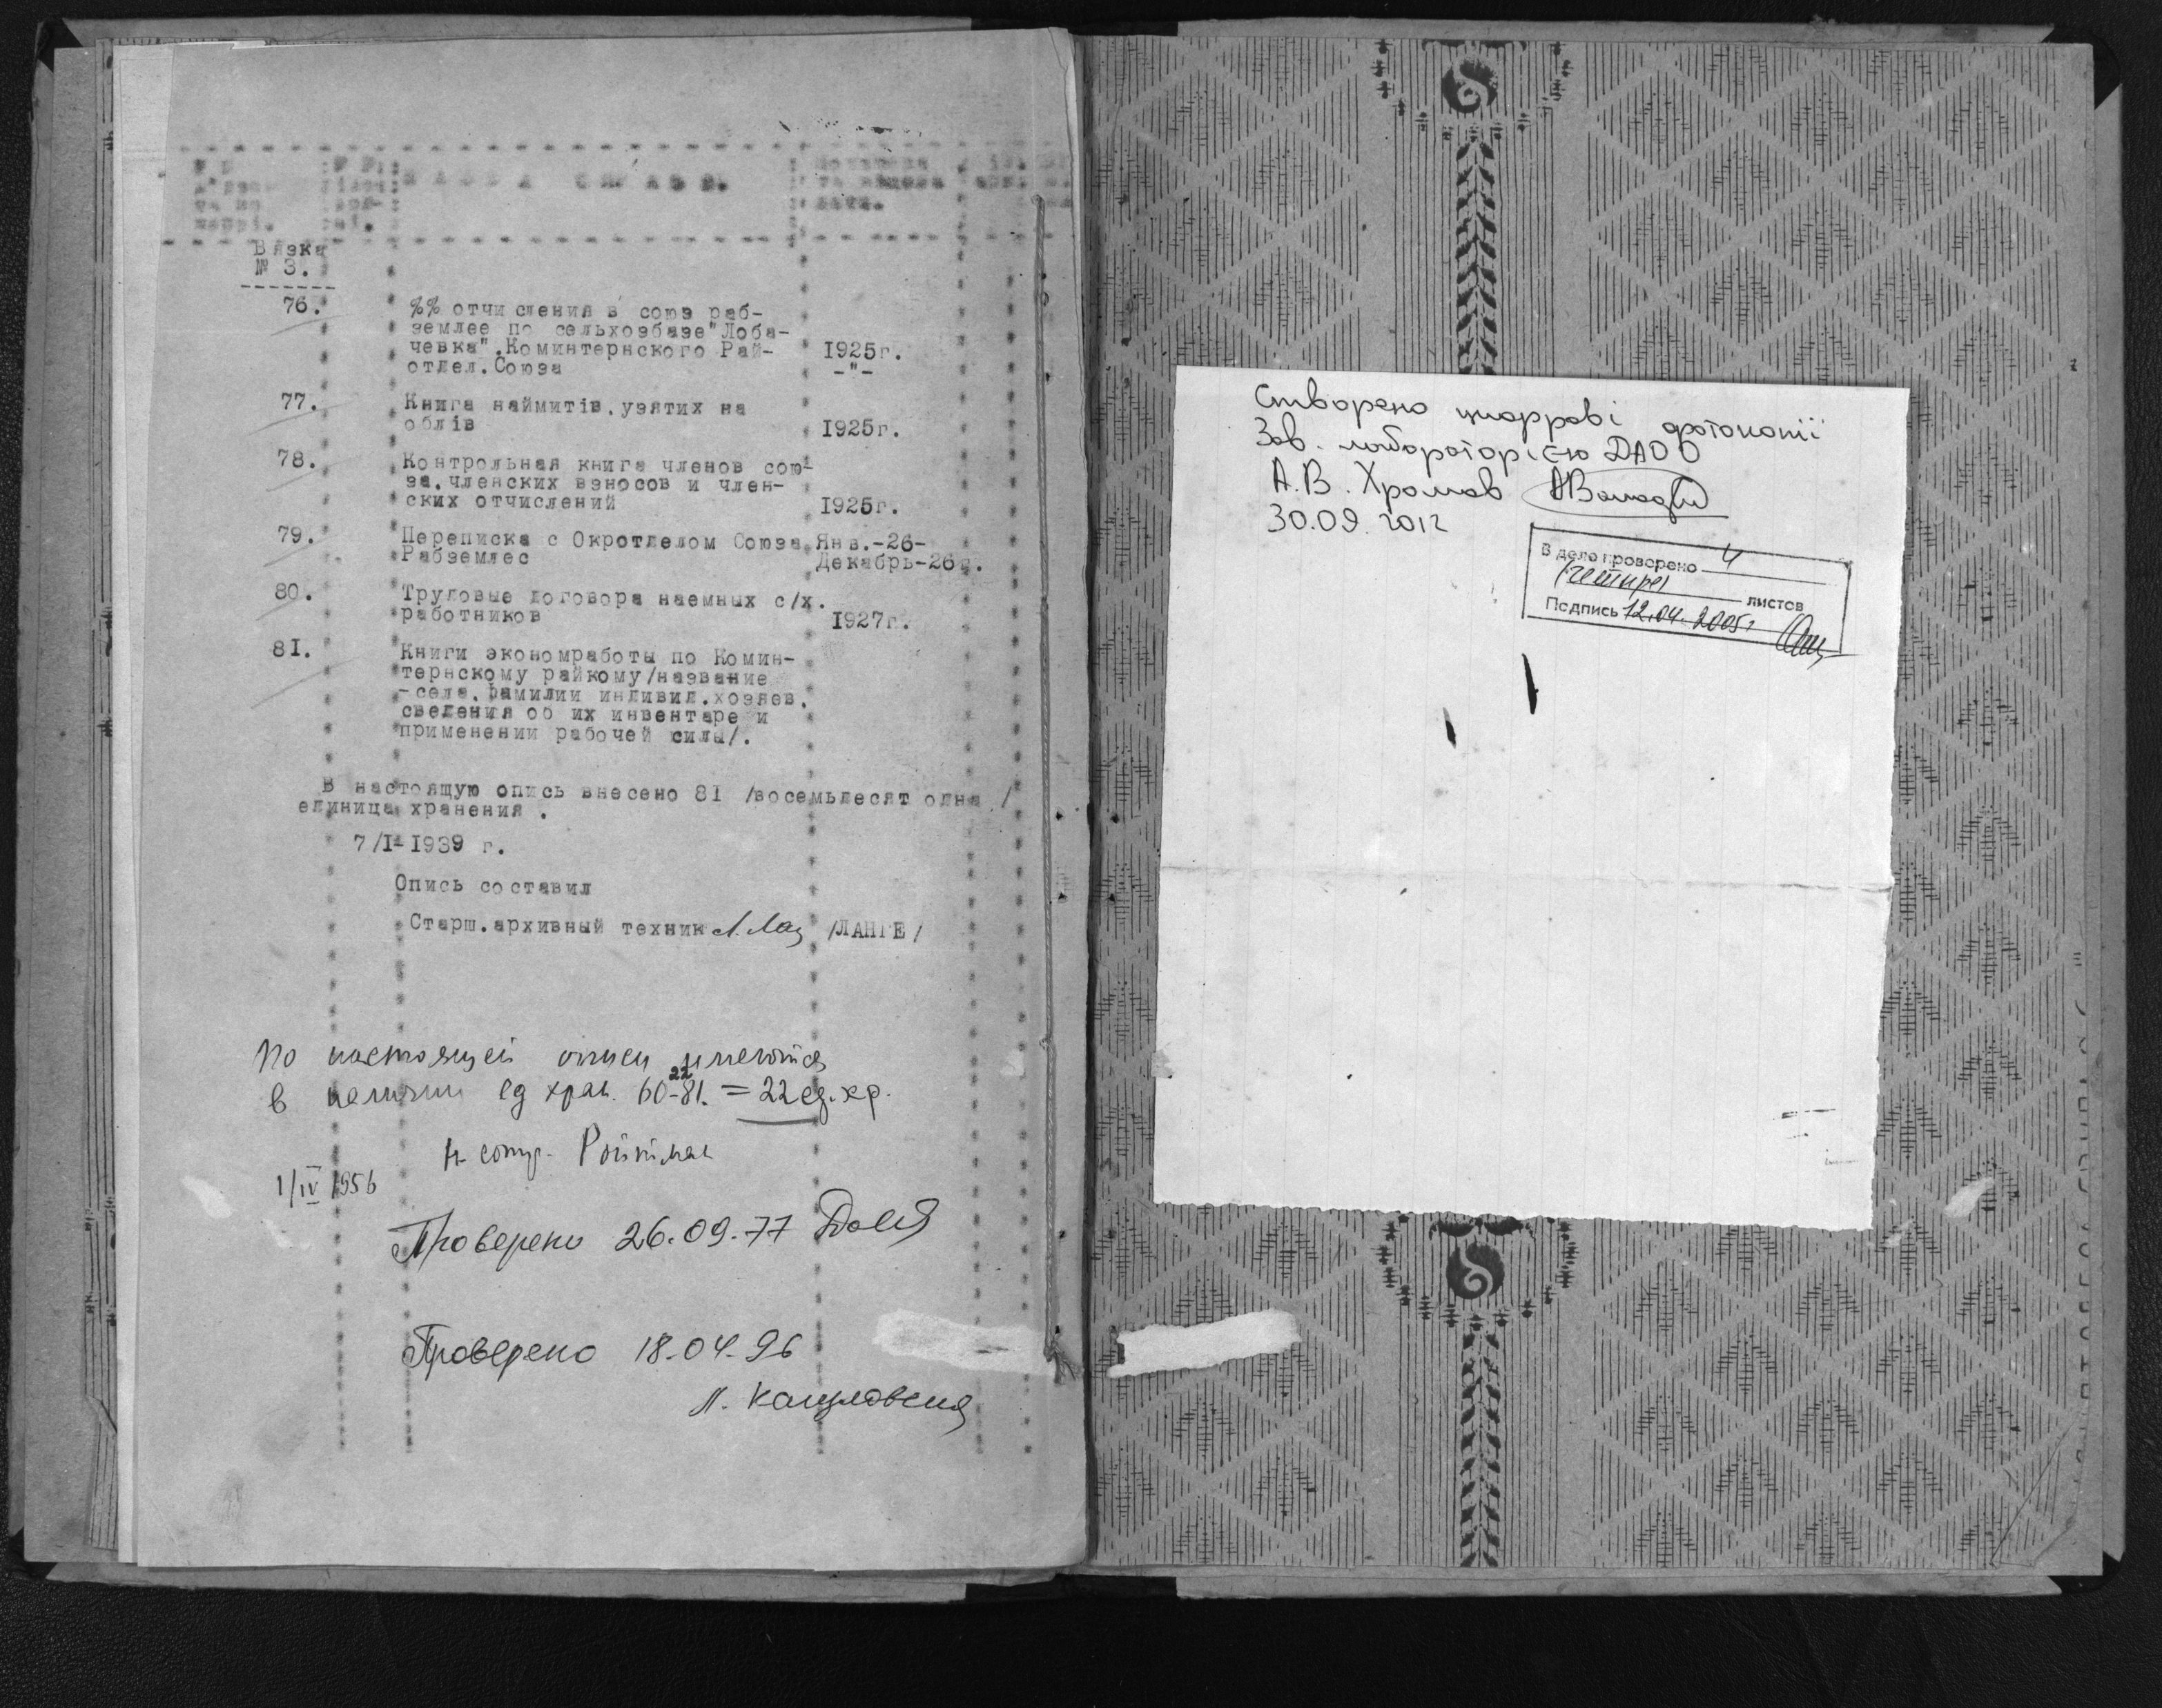 НАЗВА СПРАВИ.
Вязка
№ 3.
76.
%% отчисления в союз раб-
землес по сельхозбазе "Лоба-
чевка". Коминтернского Рай-
отдел. Союза
1925г.
-"-
77.
Книга наймитів, узятих на
облів
1925г.
78.
Контрольная книга членов сою-
за, членских взносов и член-
ских отчислений
1925г.
79.
Переписка с Окротделом Союза
Рабземлес
Янв.-26-
Декабрь-26г.
80.
Трудовые договора наемных с/х.
работников
1927г.
81.
Книги экономработы по Комин-
тернскому райкому/название
-села, фамилии индивид.хозяев,
сведения об их инвентаре и
применении рабочей силы/.
В настоящую опись внесено 81 /восемьдесят одна/
единица хранения.
7/I-1939 г.
Опись составил
Старш.архивный техник /ЛАНГЕ/
По настоящей описи имеются
в наличии ед хран. 60-81. = 22 ед.хр.
22
н. сотр. Ройтман
1/IV 1956
Проверено 26.09.77
Проверено 18.04.96
Створено цифрові фотокопії
Зав. лабораторією ДАОО
А.В. Хромов
30.09.2012
В деле проверено 4
(четыре) листов
Подпись 12.04.2005г